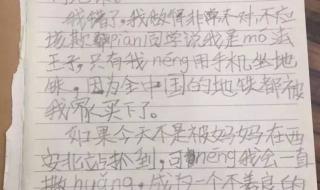 我错了,我做得非常不对,不应
该欺骗pian同学说我是mó法
王子,只有我néng用手机坐地
铁,因为全中国的地铁都被
我家买下了。
如果今天不是被妈妈在西
安北站抓到,可néng我会一直
撒huǎng,成为一个不善良的